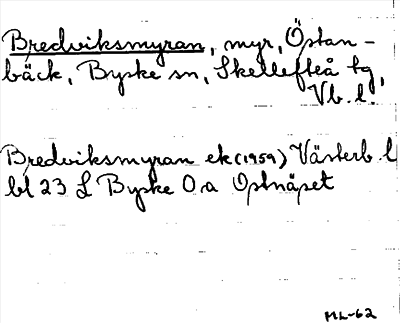 Bredviksmyran, myr, Östan-
bäck, Byske sn, Skellefteå tg,
Vb. l.
Bredviksmyran ek (1959) Västerb. l
bl 23 L Byske O a Ostnäset
ML-62